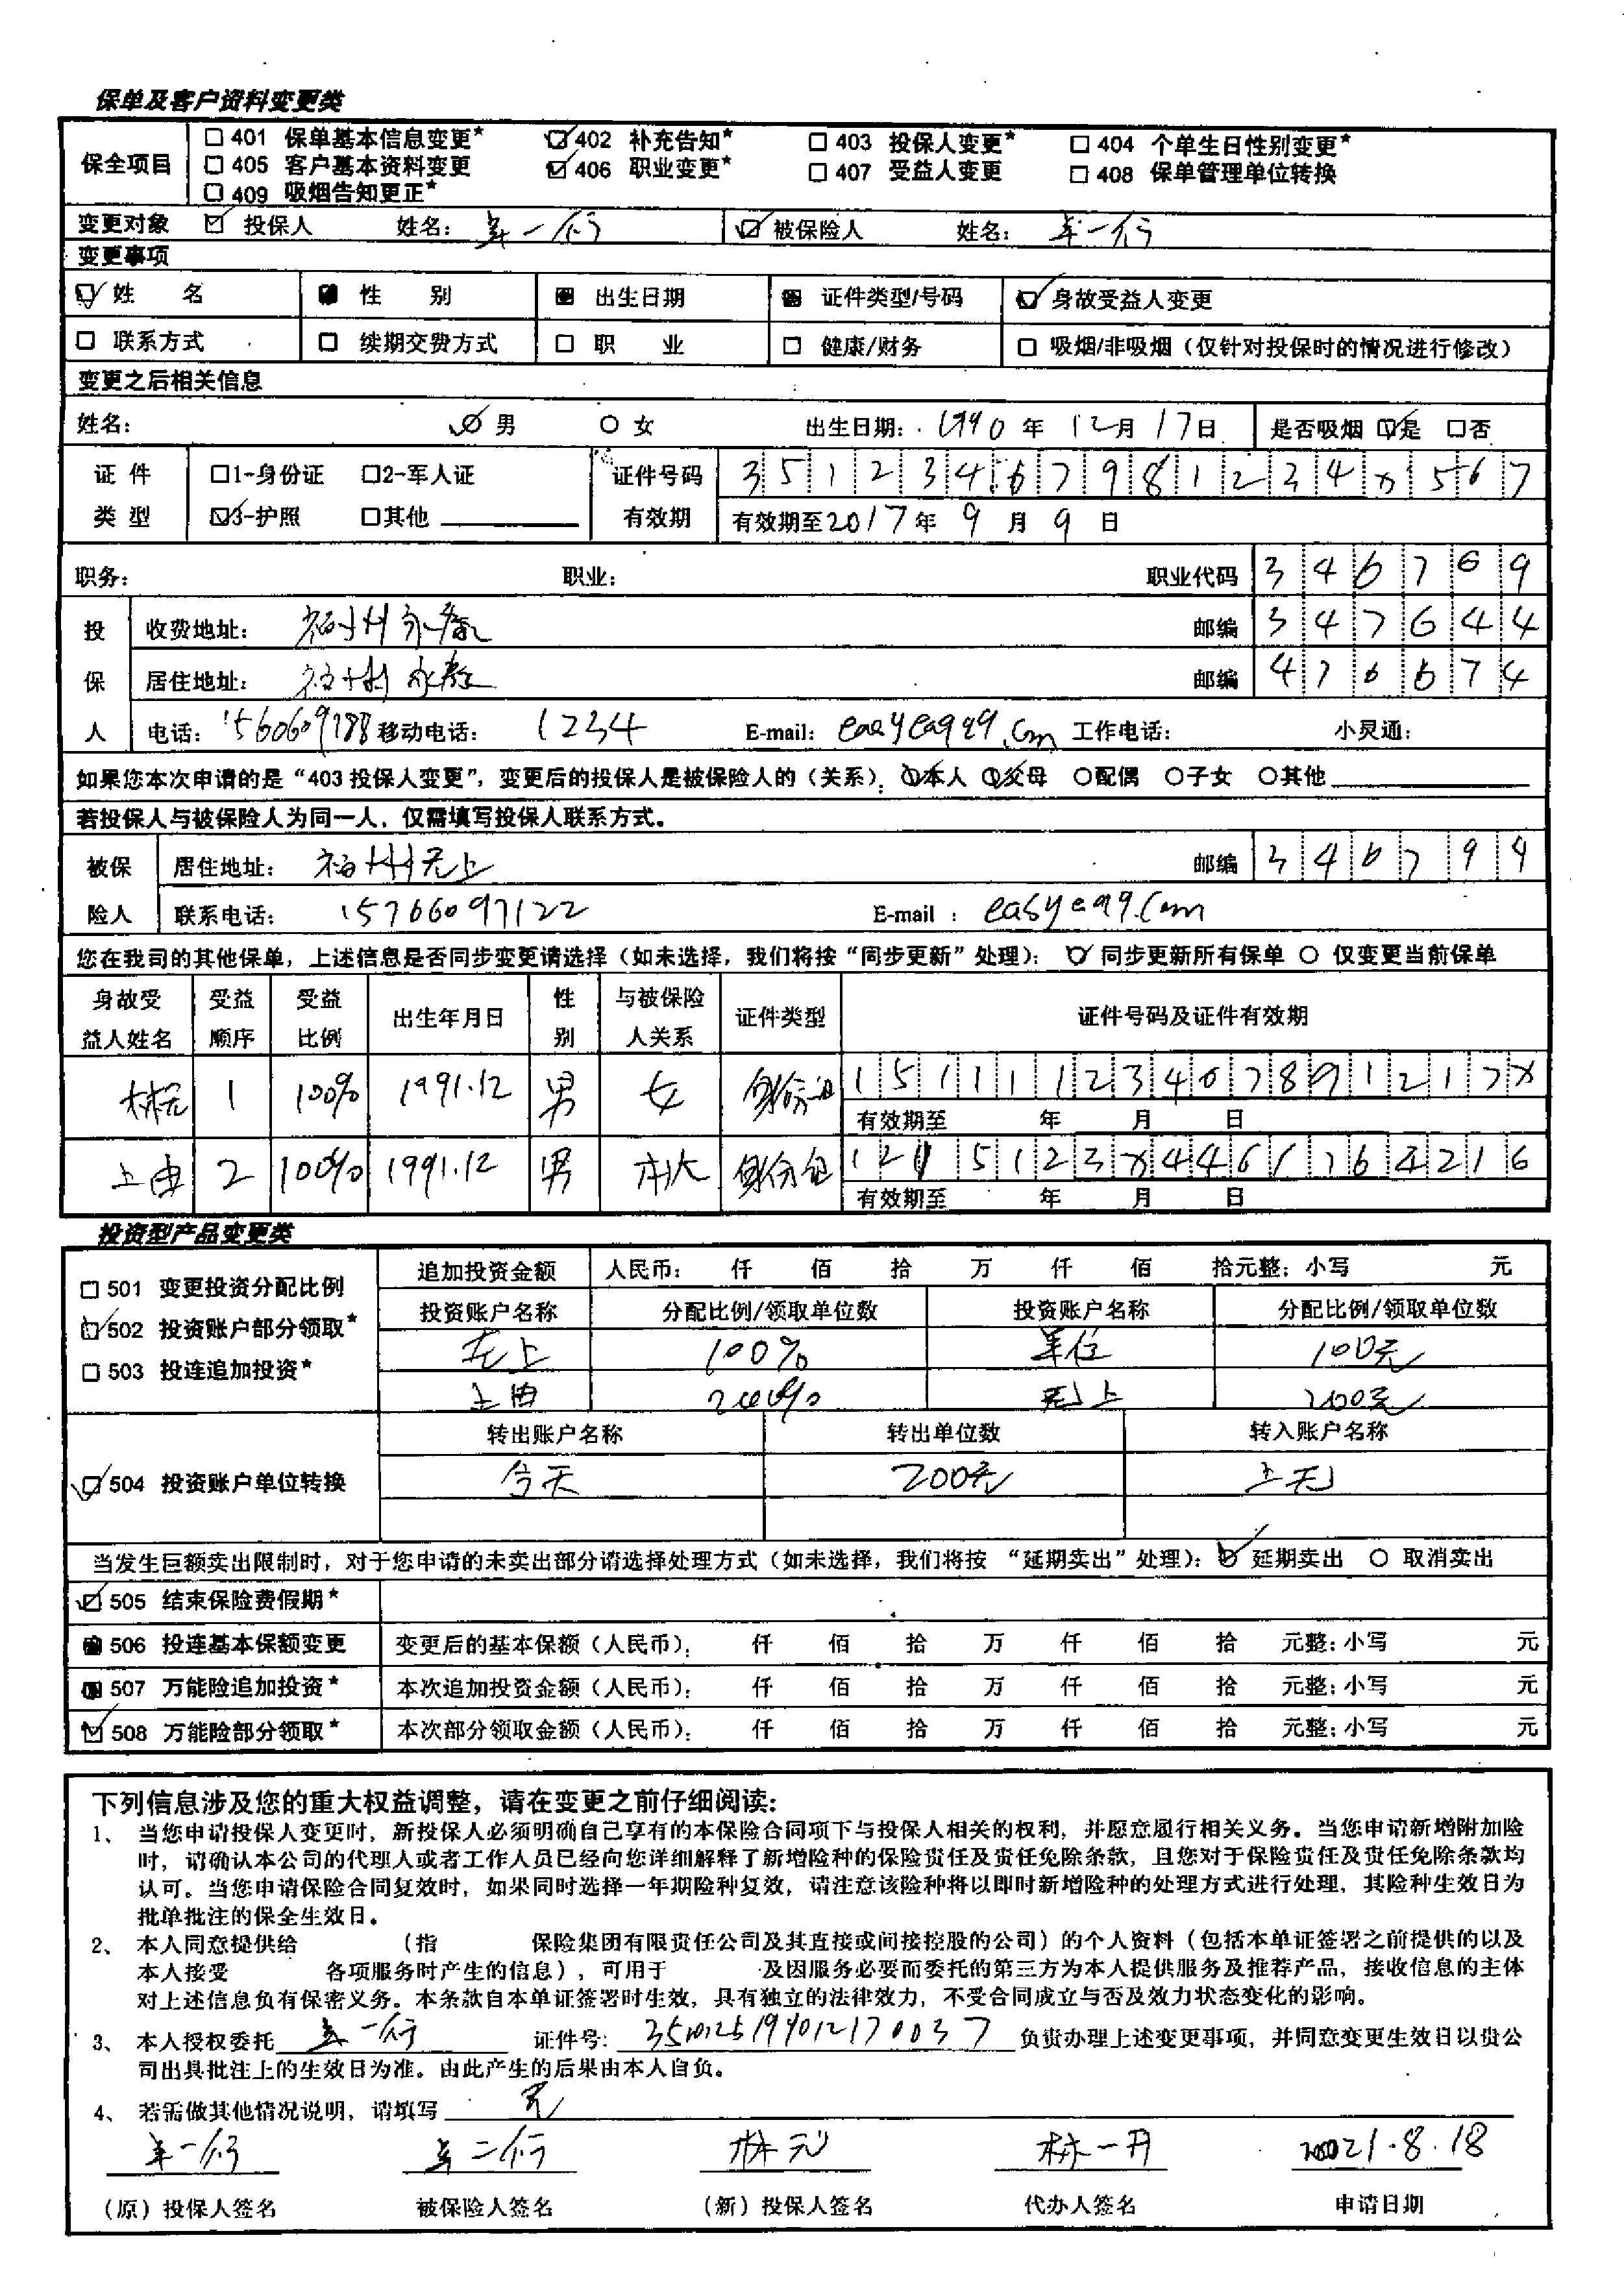 保单及客户资料变更类
保全项目 □ 401 保单基本信息变更* ☑ 402 补充告知* □ 403 投保人变更* □ 404 个单生日性别变更*
□ 405 客户基本资料变更 ☑ 406 职业变更* □ 407 受益人变更 □ 408 保单管理单位转换
□ 409 吸烟告知更正*
变更对象 ☑ 投保人 姓名: 一行 ☑ 被保险人 姓名: 一行
变更事项
☑ 姓 名 ■ 性 别 ■ 出生日期 ■ 证件类型/号码 ☑ 身故受益人变更
□ 联系方式 □ 续期交费方式 □ 职 业 □ 健康/财务 □ 吸烟/非吸烟（仅针对投保时的情况进行修改）
变更之后相关信息
姓名: ☑ 男 ○ 女 出生日期: 1990 年 12 月 17 日 是否吸烟 ☑是 □否
证件类型 □1-身份证 □2-军人证 证件号码 3 5 1 2 3 4 6 7 9 8 1 2 3 4 x 5 6 7
☑3-护照 □其他 有效期 有效期至 2017 年 9 月 9 日
职务: 职业: 职业代码 3 4 6 7 6 9
投保人 收费地址: 福州永春 邮编 3 4 7 6 4 4
居住地址: 福州永春 邮编 4 7 6 6 7 4
电话: 移动电话: 1234 E-mail: 工作电话: 小灵通:
如果您本次申请的是“403 投保人变更”，变更后的投保人是被保险人的（关系）: ☑本人 ☑父母 ○配偶 ○子女 ○其他
若投保人与被保险人为同一人，仅需填写投保人联系方式。
被保险人 居住地址: 福州无上 邮编 3 4 6 7 9 9
联系电话: 15766097122 E-mail : easyeqq.com
您在我司的其他保单，上述信息是否同步变更请选择（如未选择，我们将按“同步更新”处理）: ☑ 同步更新所有保单 ○ 仅变更当前保单
身故受益人姓名 受益顺序 受益比例 出生年月日 性别 与被保险人关系 证件类型 证件号码及证件有效期
林元 1 100% 1991.12 男 女 身份证
有效期至 年 月 日
上由 2 100% 1991.12 男 身份证
有效期至 年 月 日
投资型产品变更类
□ 501 变更投资分配比例 追加投资金额 人民币: 仟 佰 拾 万 仟 佰 拾元整: 小写 元
☑ 502 投资账户部分领取* 投资账户名称 分配比例/领取单位数 投资账户名称 分配比例/领取单位数
□ 503 投连追加投资* 无上 100% 单位 100元
上由 200% 无上 200元
转出账户名称 转出单位数 转入账户名称
☑ 504 投资账户单位转换 今天 200元 上天
当发生巨额卖出限制时，对于您申请的未卖出部分请选择处理方式（如未选择，我们将按 “延期卖出”处理）: ☑ 延期卖出 ○ 取消卖出
☑ 505 结束保险费假期*
■ 506 投连基本保额变更 变更后的基本保额（人民币）: 仟 佰 拾 万 仟 佰 拾 元整: 小写 元
■ 507 万能险追加投资* 本次追加投资金额（人民币）: 仟 佰 拾 万 仟 佰 拾 元整: 小写 元
☑ 508 万能险部分领取* 本次部分领取金额（人民币）: 仟 佰 拾 万 仟 佰 拾 元整: 小写 元
下列信息涉及您的重大权益调整，请在变更之前仔细阅读:
1、 当您申请投保人变更时，新投保人必须明确自己享有的本保险合同项下与投保人相关的权利，并愿意履行相关义务。当您申请新增附加险
时，请确认本公司的代理人或者工作人员已经向您详细解释了新增险种的保险责任及责任免除条款，且您对于保险责任及责任免除条款均
认可。当您申请保险合同复效时，如果同时选择一年期险种复效，请注意该险种将以即时新增险种的处理方式进行处理，其险种生效日为
批单批注的保全生效日。
2、 本人同意提供给 （指 保险集团有限责任公司及其直接或间接控股的公司）的个人资料（包括本单证签署之前提供的以及
本人接受 各项服务时产生的信息），可用于 及因服务必要而委托的第三方为本人提供服务及推荐产品，接收信息的主体
对上述信息负有保密义务。本条款自本单证签署时生效，具有独立的法律效力，不受合同成立与否及效力状态变化的影响。
3、 本人授权委托 一行 证件号: 负责办理上述变更事项，并同意变更生效日以贵公
司出具批注上的生效日为准。由此产生的后果由本人自负。
4、 若需做其他情况说明，请填写 无
一行 二行 林元 林一丹 2021.8.18
（原）投保人签名 被保险人签名 （新）投保人签名 代办人签名 申请日期